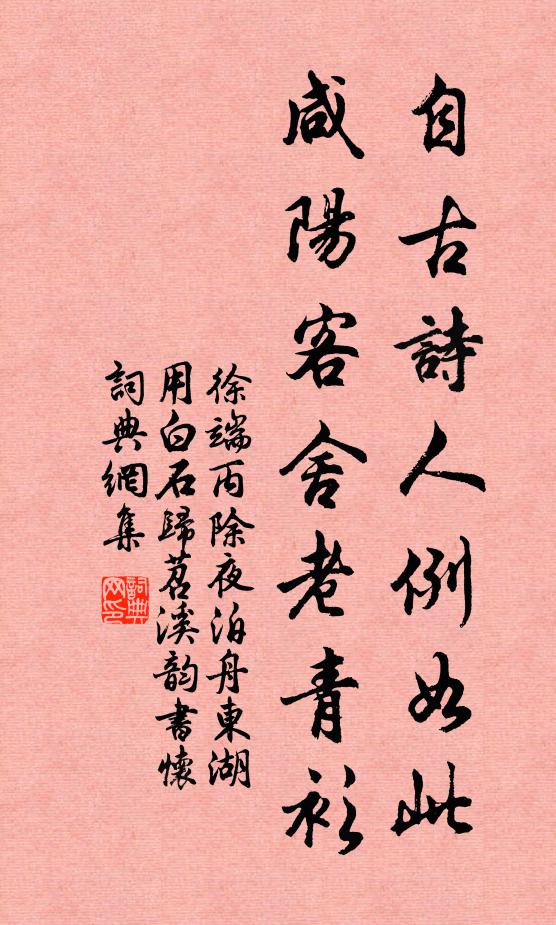 自古詩人例如此
咸陽客舍老青衫
徐端丙除夜泊舟東湖
用白石歸苕溪韵書懷
詞典網集
詞典網印